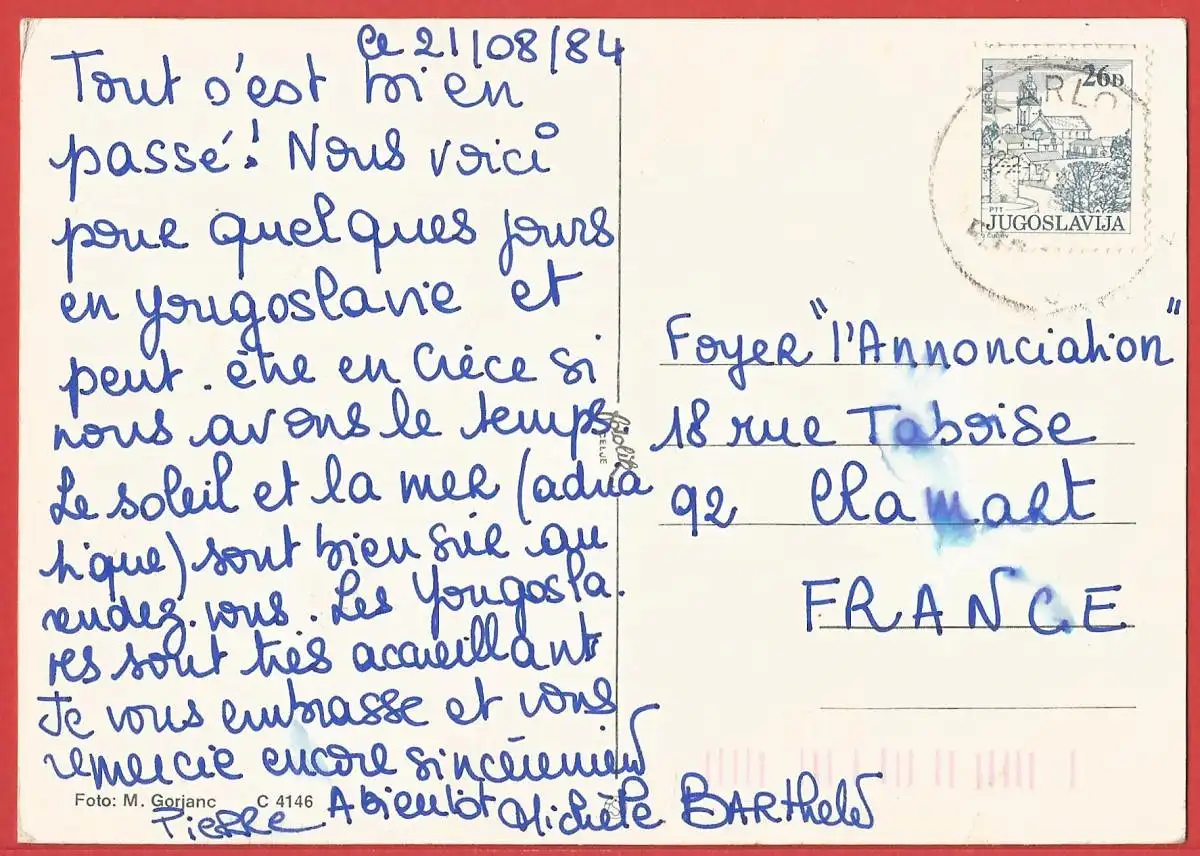 Ce 21/08/84
Tout s'est bien
passé! Nous voici
pour quelques jours
en Yougoslavie et
peut-être en Grèce si
nous avons le temps
Le soleil et la mer (adria
tique) sont bien sûr au
rendez-vous. Les Yougosla-
ves sont très accueillants
Je vous embrasse et vous
remercie encore sincèrement
A bientôt Michèle BARThele
Pierre
Foto: M. Gorjanc C 4146
CELJE
26D
PTT
JUGOSLAVIJA
Foyer "l'Annonciation"
18 rue Taboise
92 Clamart
FRANCE